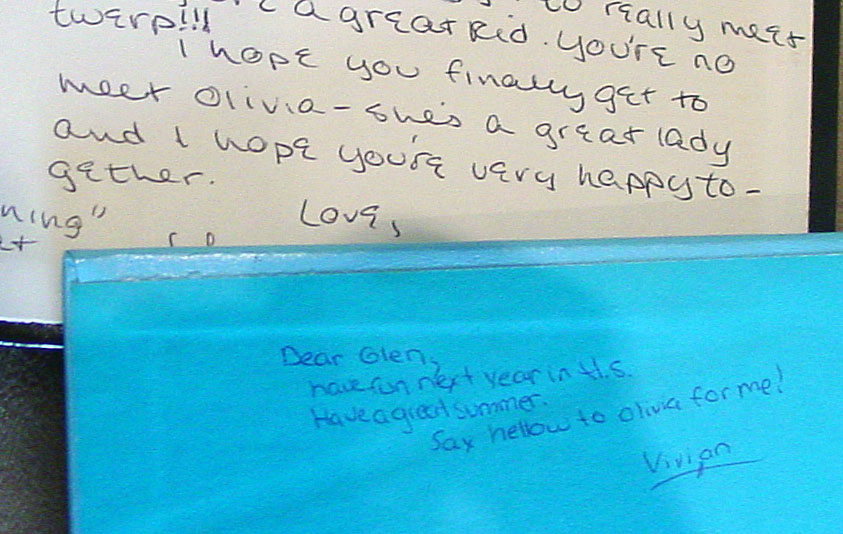 to really meet
twerp!!! a great kid. You're no
I hope you finally get to
meet Olivia – she's a great lady
and I hope you're very happy to-
gether.
ning"
Love,
et
Dear Glen,
have fun next year in H.S.
Have a great summer.
Say hellow to Olivia for me!
Vivian